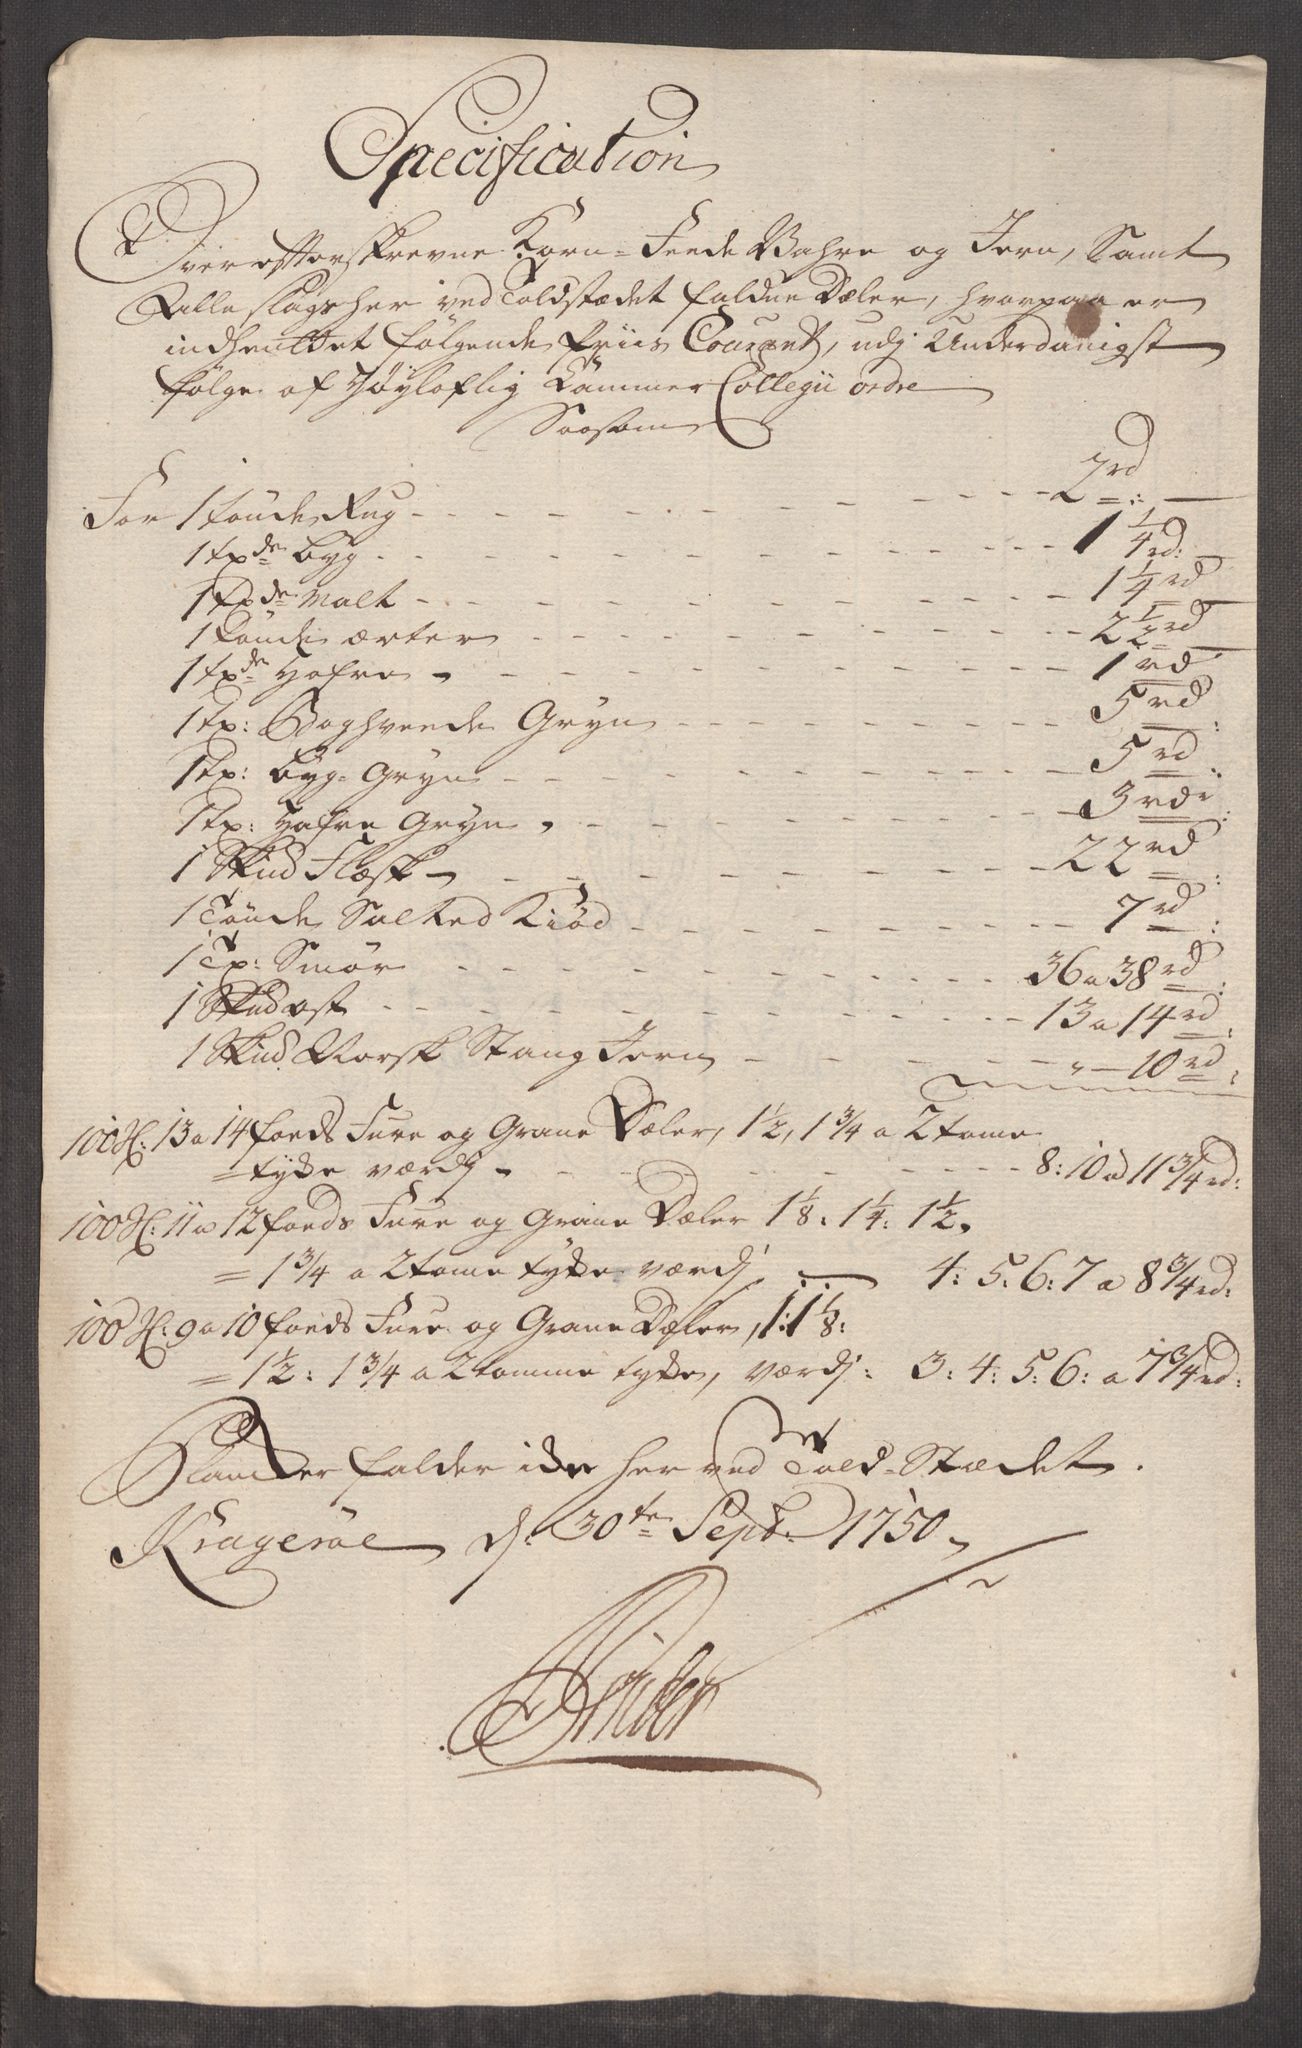 Specification
Over efterskrevne Korn- Feede Vahre og Jern, Samt
Alle slags her ved Toldstædet faldne Dæler, hvorpaa er
indhentet følgende Priis Courant, udj Underdanigst
følge af Høyloflig Cammer Collegii ordre
Saasom
For 1 Tönde Rug - - - 2 rd
1 Tx de Byg - - - 1 1/4 rd:
1 Tx de Malt - - - 1 1/4 rd
1 Tönde ærter - - - 2 1/2 rd
1 Tx de Hafre - - - 1 rd
1 Tx: Boghveede Gryn - - - 5 rd
1 Tx: Byg- Gryn - - - 5 rd
1 Tx: Hafre Gryn - - - 3 rd
1 Skud Flæsk - - - 22 rd
1 Tönde Salted Kiød - - - 7 rd
1 Tx: Smør - - - 36 a 38 rd
1 Skud ost - - - 13 a 14 rd
1 Skud Norsk Stang Jern - - - 10 rd
100 St: 13 a 14 foeds Fure og Grane Dæler, 1 1/2, 1 3/4 a 2 tome
= tykke værdj - - - 8: 10 a 11 3/4 rd:
100 St: 11 a 12 foeds Fure og Grane Dæler 1 1/8: 1 1/4: 1 1/2,
= 1 3/4 a 2 tome tykke værdj 4: 5: 6: 7 a 8 3/4 rd:
100 St: 9 a 10 foeds Fure og Grane Dæler, 1: 1 1/8:
= 1 1/2: 1 3/4 a 2 tomme tykke, værdj: 3: 4: 5: 6: a 7 3/4 rd:
Plancker falder ikke her ved Told-Stædet.
Kragerøe d: 30te Septb: 1750